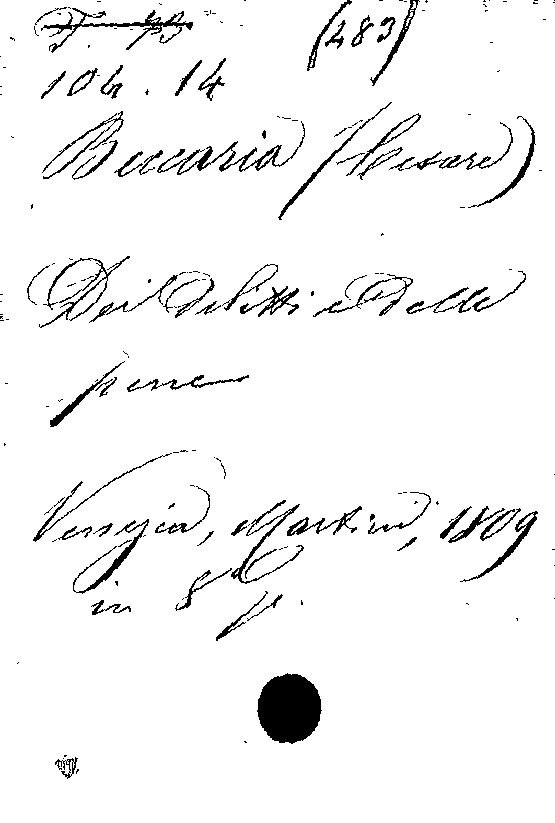 (283)
104. 14
Beccaria (Cesare)
Dei delitti e delle
pene
Venezia, Martini, 1809
in 8°